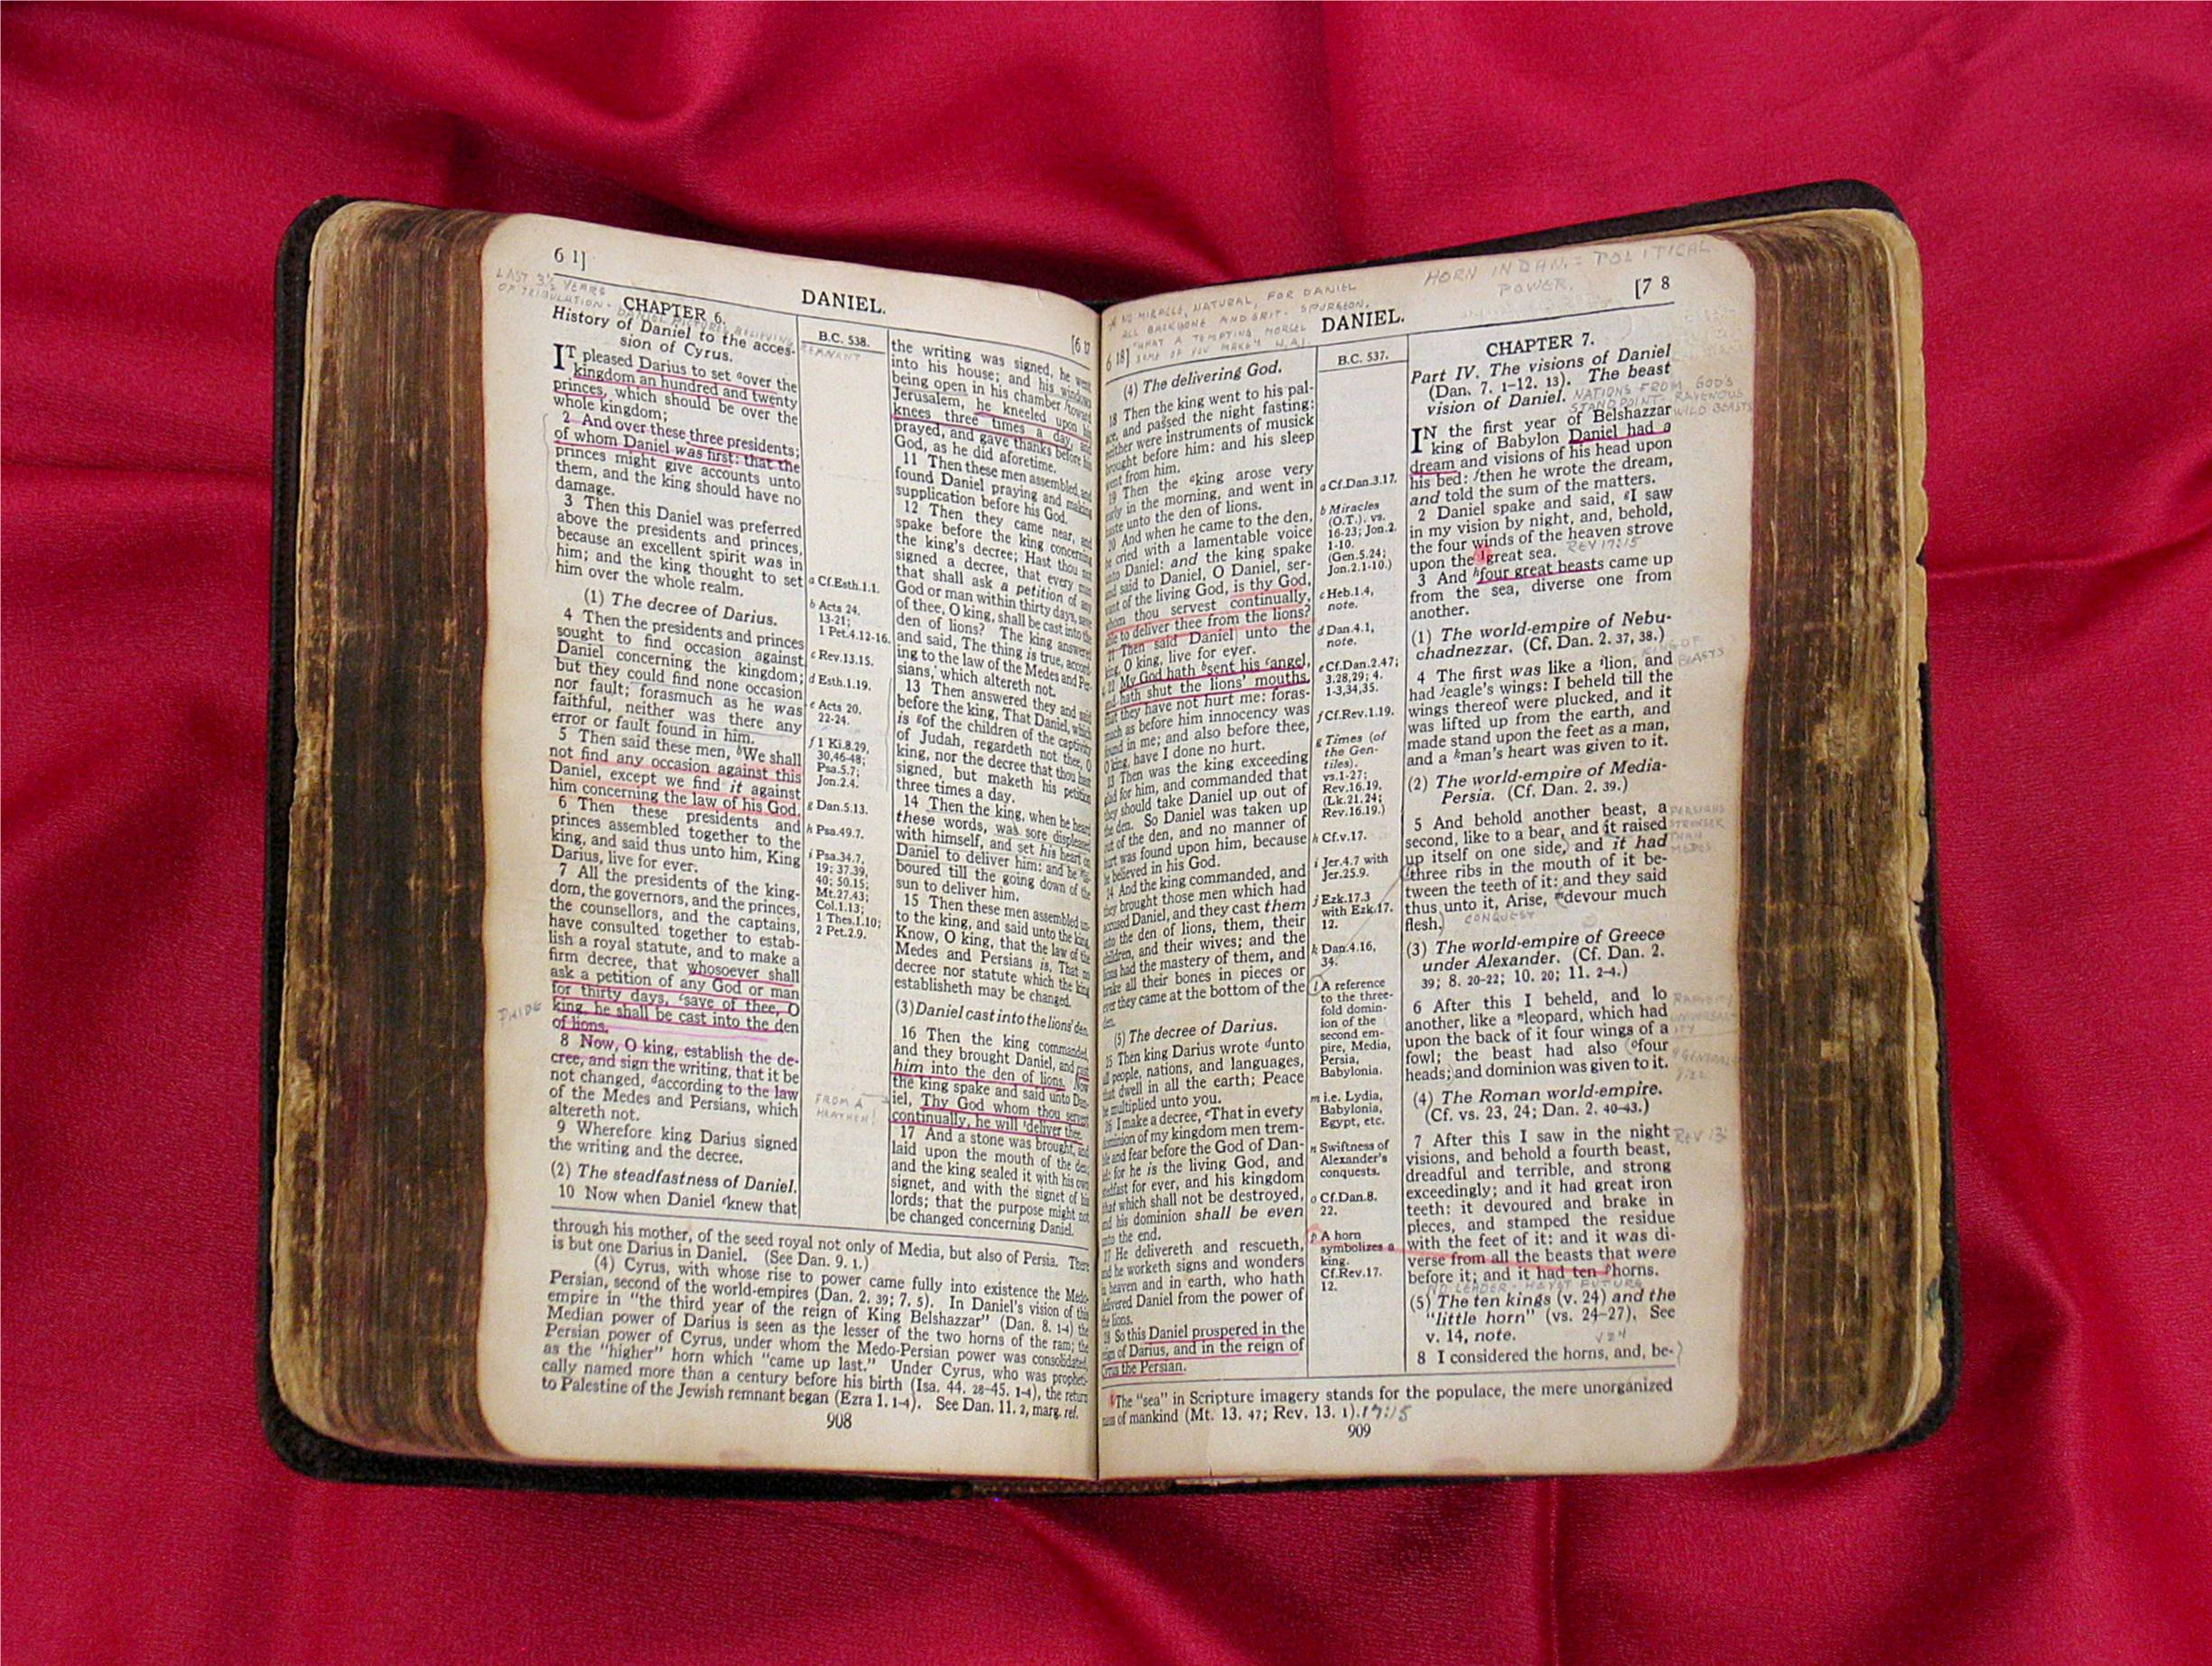 6 1]
DANIEL.
[6 17
LAST 3½ YEARS
OF TRIBULATION.
CHAPTER 6.
DANIEL PICTURES BELIEVING
REMNANT
History of Daniel to the acces-
sion of Cyrus.
IT pleased Darius to set ᵃover the
kingdom an hundred and twenty
princes, which should be over the
whole kingdom;
2 And over these three presidents;
of whom Daniel was first: that the
princes might give accounts unto
them, and the king should have no
damage.
3 Then this Daniel was preferred
above the presidents and princes,
because an excellent spirit was in
him; and the king thought to set
him over the whole realm.
(1) The decree of Darius.
4 Then the presidents and princes
sought to find occasion against
Daniel concerning the kingdom;
but they could find none occasion
nor fault; forasmuch as he was
faithful, neither was there any
error or fault found in him.
5 Then said these men, ᵇWe shall
not find any occasion against this
Daniel, except we find it against
him concerning the law of his God.
6 Then these presidents and
princes assembled together to the
king, and said thus unto him, King
Darius, live for ever.
7 All the presidents of the king-
dom, the governors, and the princes,
the counsellors, and the captains,
have consulted together to estab-
lish a royal statute, and to make a
firm decree, that whosoever shall
ask a petition of any God or man
for thirty days, ᶜsave of thee, O
king, he shall be cast into the den
of lions.
PRIDE
8 Now, O king, establish the de-
cree, and sign the writing, that it be
not changed, ᵈaccording to the law
of the Medes and Persians, which
altereth not.
9 Wherefore king Darius signed
the writing and the decree.
(2) The steadfastness of Daniel.
10 Now when Daniel ᵉknew that
B.C. 538.
a Cf.Esth.1.1.
b Acts 24.
13-21;
1 Pet.4.12-16.
c Rev.13.15.
d Esth.1.19.
e Acts 20.
22-24.
f 1 Ki.8.29,
30,46-48;
Psa.5.7;
Jon.2.4.
g Dan.5.13.
h Psa.49.7.
i Psa.34.7,
19; 37.39,
40; 50.15;
Mt.27.43;
Col.1.13;
1 Thes.1.10;
2 Pet.2.9.
FROM A
HEATHEN!
the writing was signed, he went
into his house; and his windows
being open in his chamber ᶠtoward
Jerusalem, he kneeled upon his
knees three times a day, and
prayed, and gave thanks before his
God, as he did aforetime.
11 Then these men assembled, and
found Daniel praying and making
supplication before his God.
12 Then they came near, and
spake before the king concerning
the king's decree; Hast thou not
signed a decree, that every man
that shall ask a petition of any
God or man within thirty days, save
of thee, O king, shall be cast into the
den of lions? The king answered
and said, The thing is true, accord-
ing to the law of the Medes and Per-
sians, which altereth not.
13 Then answered they and said
before the king, That Daniel, which
is ᵍof the children of the captivity
of Judah, regardeth not thee, O
king, nor the decree that thou hast
signed, but maketh his petition
three times a day.
14 Then the king, when he heard
these words, was sore displeased
with himself, and set his heart on
Daniel to deliver him: and he ʰla-
boured till the going down of the
sun to deliver him.
15 Then these men assembled un-
to the king, and said unto the king,
Know, O king, that the law of the
Medes and Persians is, That no
decree nor statute which the king
establisheth may be changed.
(3) Daniel cast into the lions' den.
16 Then the king commanded,
and they brought Daniel, and cast
him into the den of lions. Now
the king spake and said unto Dan-
iel, Thy God whom thou servest
continually, he will ⁱdeliver thee.
17 And a stone was brought, and
laid upon the mouth of the den;
and the king sealed it with his own
signet, and with the signet of his
lords; that the purpose might not
be changed concerning Daniel.
through his mother, of the seed royal not only of Media, but also of Persia. There
is but one Darius in Daniel. (See Dan. 9. 1.)
(4) Cyrus, with whose rise to power came fully into existence the Medo-
Persian, second of the world-empires (Dan. 2. 39; 7. 5). In Daniel's vision of this
empire in "the third year of the reign of King Belshazzar" (Dan. 8. 1-4) the
Median power of Darius is seen as the lesser of the two horns of the ram; the
Persian power of Cyrus, under whom the Medo-Persian power was consolidated,
as the "higher" horn which "came up last." Under Cyrus, who was propheti-
cally named more than a century before his birth (Isa. 44. 28-45. 1-4), the return
to Palestine of the Jewish remnant began (Ezra 1. 1-4). See Dan. 11. 2, marg. ref.
908
HORN IN DAN. = POLITICAL
POWER.
NO MIRACLE, NATURAL, FOR DANIEL
ALL BACKBONE AND GRIT. SPURGEON.
"WHAT A TEMPTING MORSEL
SOME OF YOU MAKE"
6 18]
DANIEL.
[7 8
(4) The delivering God.
18 Then the king went to his pal-
ace, and passed the night fasting:
neither were instruments of musick
brought before him: and his sleep
went from him.
19 Then the ᵃking arose very
early in the morning, and went in
haste unto the den of lions.
20 And when he came to the den,
he cried with a lamentable voice
unto Daniel: and the king spake
and said to Daniel, O Daniel, ser-
vant of the living God, is thy God,
whom thou servest continually,
able to deliver thee from the lions?
21 Then said Daniel unto the
king, O king, live for ever.
22 My God hath ᵇsent his ᶜangel,
and hath shut the lions' mouths,
that they have not hurt me: foras-
much as before him innocency was
found in me; and also before thee,
O king, have I done no hurt.
23 Then was the king exceeding
glad for him, and commanded that
they should take Daniel up out of
the den. So Daniel was taken up
out of the den, and no manner of
hurt was found upon him, because
he believed in his God.
24 And the king commanded, and
they brought those men which had
accused Daniel, and they cast them
into the den of lions, them, their
children, and their wives; and the
lions had the mastery of them, and
brake all their bones in pieces or
ever they came at the bottom of the
den.
(5) The decree of Darius.
25 Then king Darius wrote ᵈunto
all people, nations, and languages,
that dwell in all the earth; Peace
be multiplied unto you.
26 I make a decree, ᵉThat in every
dominion of my kingdom men trem-
ble and fear before the God of Dan-
iel: for he is the living God, and
stedfast for ever, and his kingdom
that which shall not be destroyed,
and his dominion shall be even
unto the end.
27 He delivereth and rescueth,
and he worketh signs and wonders
in heaven and in earth, who hath
delivered Daniel from the power of
the lions.
28 So this Daniel prospered in the
reign of Darius, and in the reign of
Cyrus the Persian.
B.C. 537.
a Cf.Dan.3.17.
b Miracles
(O.T.). vs.
16-23; Jon.2.
1-10.
(Gen.5.24;
Jon.2.1-10.)
c Heb.1.4,
note.
d Dan.4.1,
note.
e Cf.Dan.2.47;
3.28,29; 4.
1-3,34,35.
f Cf.Rev.1.19.
g Times (of
the Gen-
tiles).
vs.1-27;
Rev.16.19.
(Lk.21.24;
Rev.16.19.)
h Cf.v.17.
i Jer.4.7 with
Jer.25.9.
j Ezk.17.3
with Ezk.17.
12.
k Dan.4.16,
34.
l A reference
to the three-
fold domin-
ion of the
second em-
pire, Media,
Persia,
Babylonia.
m i.e. Lydia,
Babylonia,
Egypt, etc.
n Swiftness of
Alexander's
conquests.
o Cf.Dan.8.
22.
p A horn
symbolizes a
king.
Cf.Rev.17.
12.
CHAPTER 7.
Part IV. The visions of Daniel
(Dan. 7. 1-12. 13). The beast
vision of Daniel.
NATIONS FROM GOD'S
STANDPOINT - RAVENOUS
WILD BEASTS
IN the first year of Belshazzar
king of Babylon Daniel had a
dream and visions of his head upon
his bed: ᶠthen he wrote the dream,
and told the sum of the matters.
2 Daniel spake and said, ᵍI saw
in my vision by night, and, behold,
the four winds of the heaven strove
upon the ¹great sea. REV 17:15
3 And ʰfour great beasts came up
from the sea, diverse one from
another.
(1) The world-empire of Nebu-
chadnezzar. (Cf. Dan. 2. 37, 38.)
KING OF
BEASTS
4 The first was like a ⁱlion, and
had ʲeagle's wings: I beheld till the
wings thereof were plucked, and it
was lifted up from the earth, and
made stand upon the feet as a man,
and a ᵏman's heart was given to it.
(2) The world-empire of Media-
Persia. (Cf. Dan. 2. 39.)
5 And behold another beast, a
second, like to a bear, and it raised
up itself on one side, and it had
ˡthree ribs in the mouth of it be-
tween the teeth of it: and they said
thus unto it, Arise, ᵐdevour much
flesh. CONQUEST
PERSIANS
STRONGER
THAN
MEDES.
(3) The world-empire of Greece
under Alexander. (Cf. Dan. 2.
39; 8. 20-22; 10. 20; 11. 2-4.)
6 After this I beheld, and lo
another, like a ⁿleopard, which had
upon the back of it four wings of a
fowl; the beast had also ᵒfour
heads; and dominion was given to it.
(4) The Roman world-empire.
(Cf. vs. 23, 24; Dan. 2. 40-43.)
7 After this I saw in the night
visions, and behold a fourth beast,
dreadful and terrible, and strong
exceedingly; and it had great iron
teeth: it devoured and brake in
pieces, and stamped the residue
with the feet of it: and it was di-
verse from all the beasts that were
before it; and it had ten ᵖhorns.
REV 13
(5) The ten kings (v. 24) and the
"little horn" (vs. 24-27). See
v. 14, note.
8 I considered the horns, and, be-
¹The "sea" in Scripture imagery stands for the populace, the mere unorganized
mass of mankind (Mt. 13. 47; Rev. 13. 1). 17:15
909